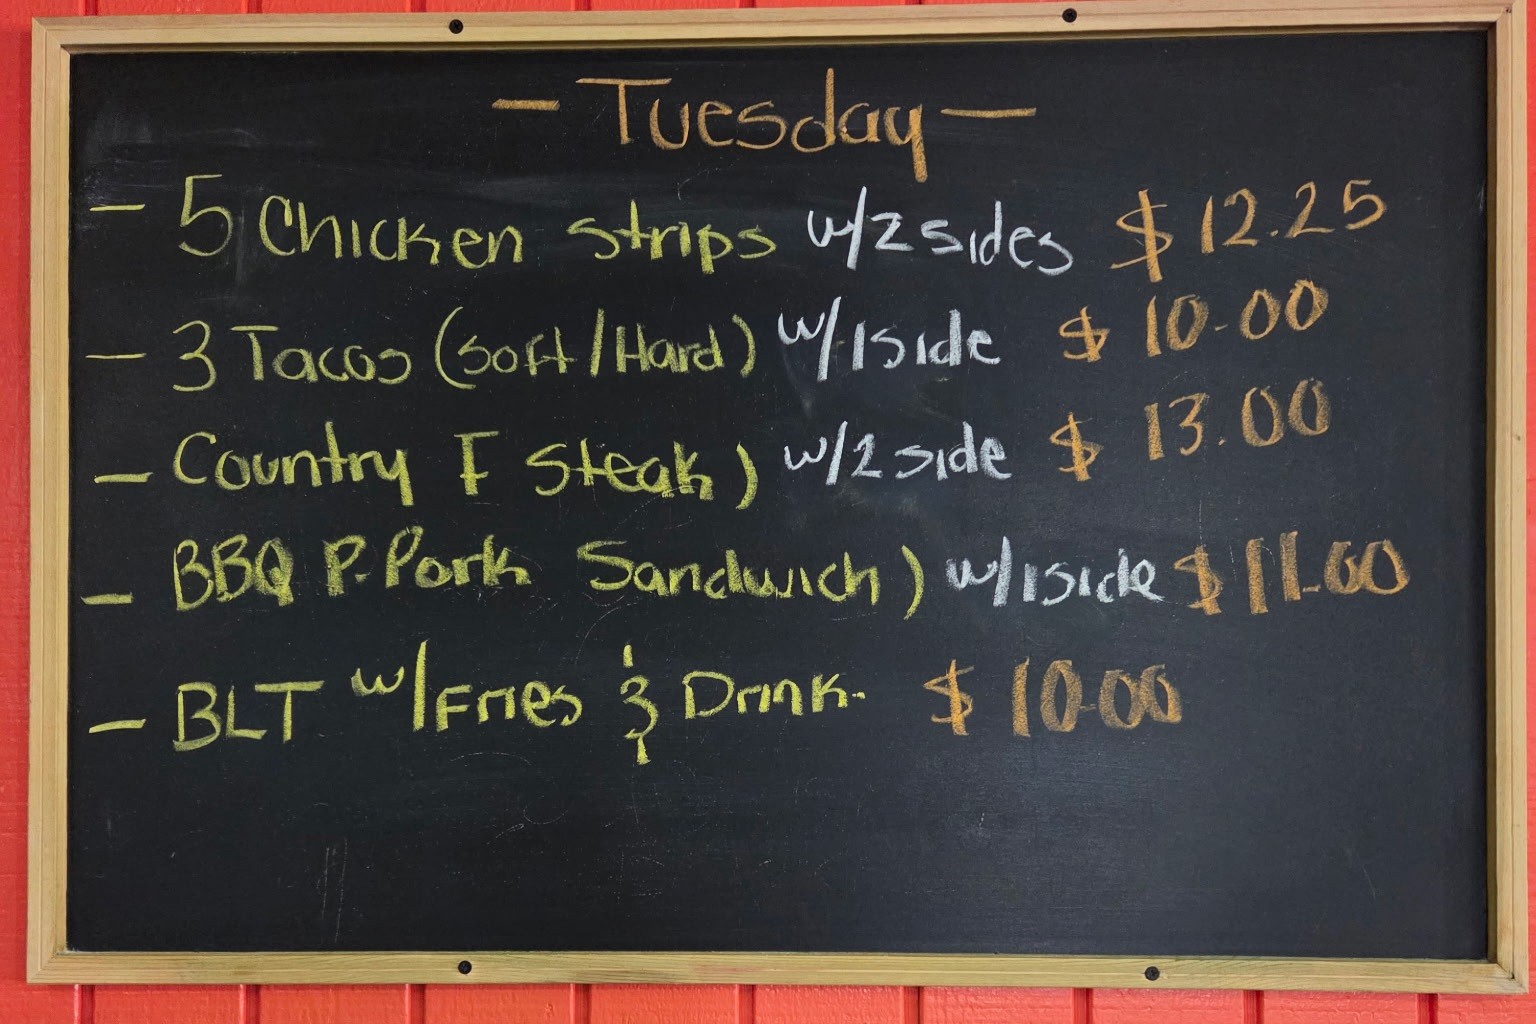 - Tuesday -
- 5 Chicken strips w/2 sides $12.25
- 3 Tacos (soft/Hard) w/1 side $10.00
- Country F Steak) w/2 side $13.00
- BBQ P. Pork Sandwich) w/1 side $11.00
- BLT w/Fries & Drink. $10.00